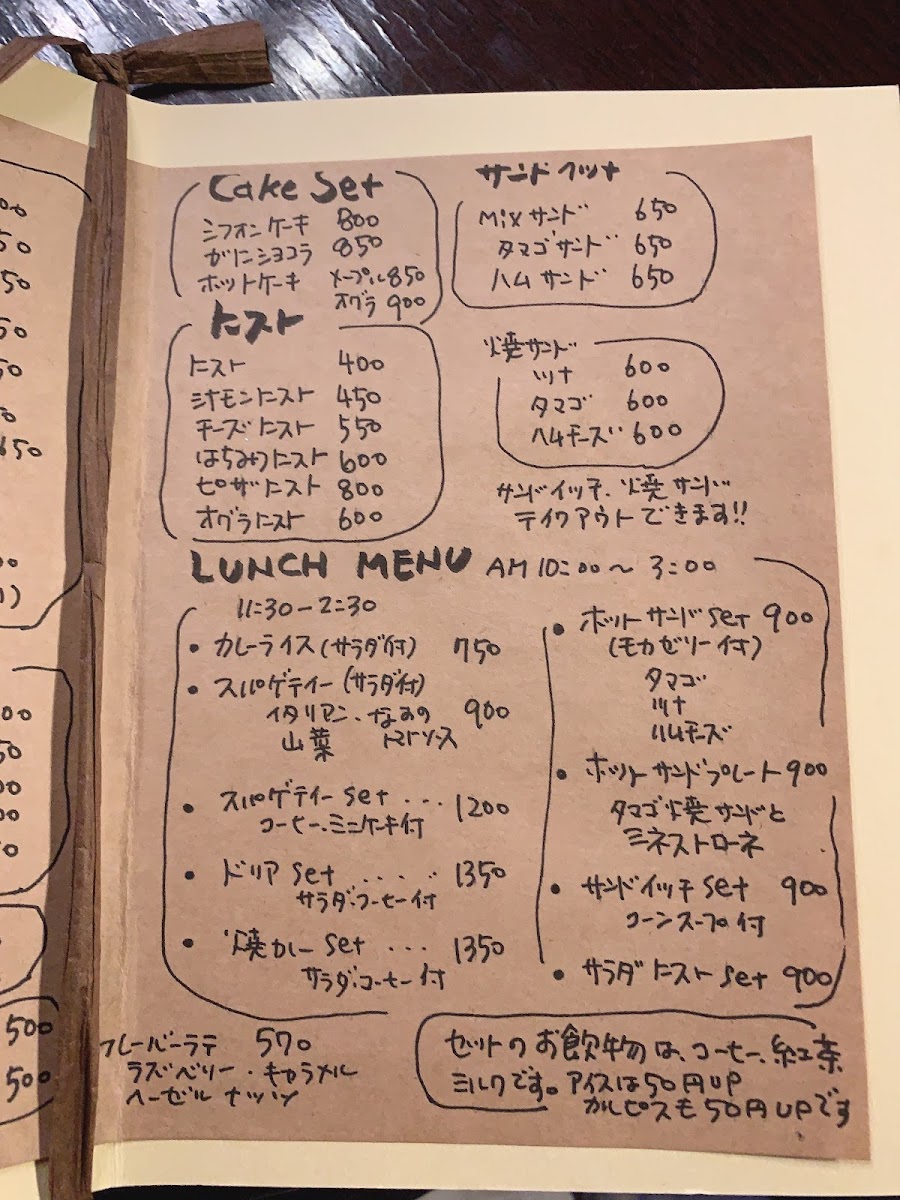 Cake Set
シフォンケーキ 800
がとーショコラ 850
ホットケーキ メープル 850
オグラ 900
トースト
トースト 400
シナモントースト 450
チーズトースト 550
はちみつトースト 600
ピザトースト 800
オグラトースト 600
サンドイッチ
Mixサンド 650
タマゴサンド 650
ハムサンド 650
焼サンド
ツナ 600
タマゴ 600
ハムチーズ 600
サンドイッチ、焼サンド
テイクアウトできます!!
LUNCH MENU AM10:00〜3:00
11:30-2:30
・カレーライス(サラダ付) 750
・スパゲティー(サラダ付)
イタリアン、なすの 900
山菜 トマトソース
・スパゲティーset ... 1200
コーヒー、ミニケーキ付
・ドリアset ..... 1350
サラダ・コーヒー付
・焼カレーset ... 1350
サラダ・コーヒー付
・ホットサンドset 900
(モカゼリー付)
タマゴ
ツナ
ハムチーズ
・ホットサンドプレート 900
タマゴ焼サンドと
ミネストローネ
・サンドイッチset 900
コーンスープ付
・サラダトーストset 900
フレーバーラテ 570
ラズベリー・キャラメル
ヘーゼルナッツ
セットのお飲物は、コーヒー、紅茶
ミルクです。アイスは50円UP
カルピスも50円UPです
650
500
500